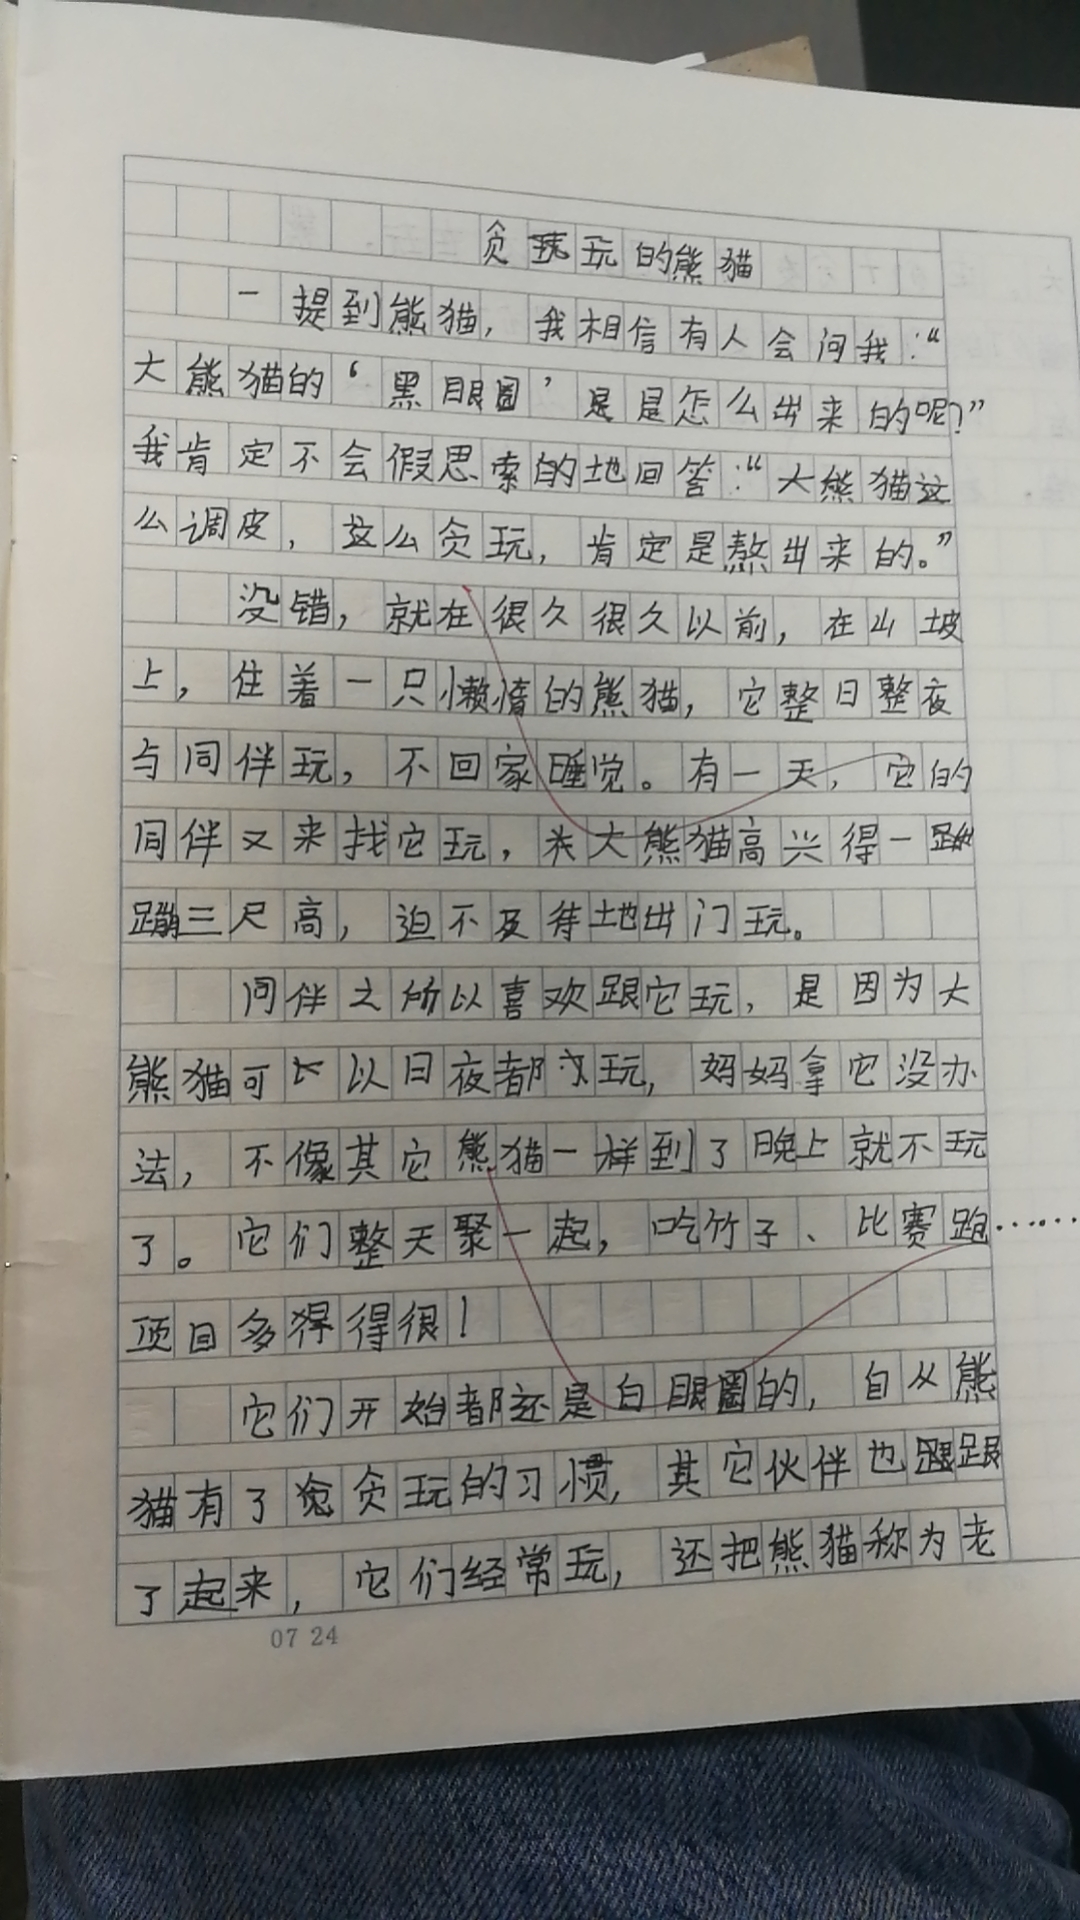 贪玩玩的熊猫
一提到熊猫，我相信有人会问我：“
大熊猫的‘黑眼圈’是是怎么出来的呢？”
我肯定不会假思索的地回答：“大熊猫这
么调皮，这么贪玩，肯定是熬出来的。”
没错，就在很久很久以前，在山坡
上，住着一只懒惰的熊猫，它整日整夜
与同伴玩，不回家睡觉。有一天，它的
同伴又来找它玩，大熊猫高兴得一蹦
蹦三尺高，迫不及待地出门玩。
同伴之所以喜欢跟它玩，是因为大
熊猫可以日夜都玩，妈妈拿它没办
法，不像其它熊猫一样到了晚上就不玩
了。它们整天聚一起，吃竹子、比赛跑……
项目多得得很！
它们开始都还是白眼圈的，自从熊
猫有了贪玩的习惯，其它伙伴也跟跟
了起来，它们经常玩，还把熊猫称为老
07 24